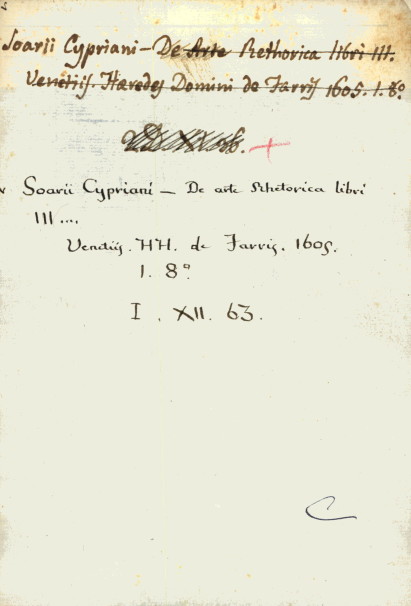 Soarii Cypriani – De Arte Rethorica libri III.
Venetiis. Haeredes Domini de Farrij 1605. 1. 8.º
Soarii Cypriani – De arte Rhetorica libri
III ...
Venetiis. HH. de Farris. 1605.
1. 8º
I. XII. 63.
C